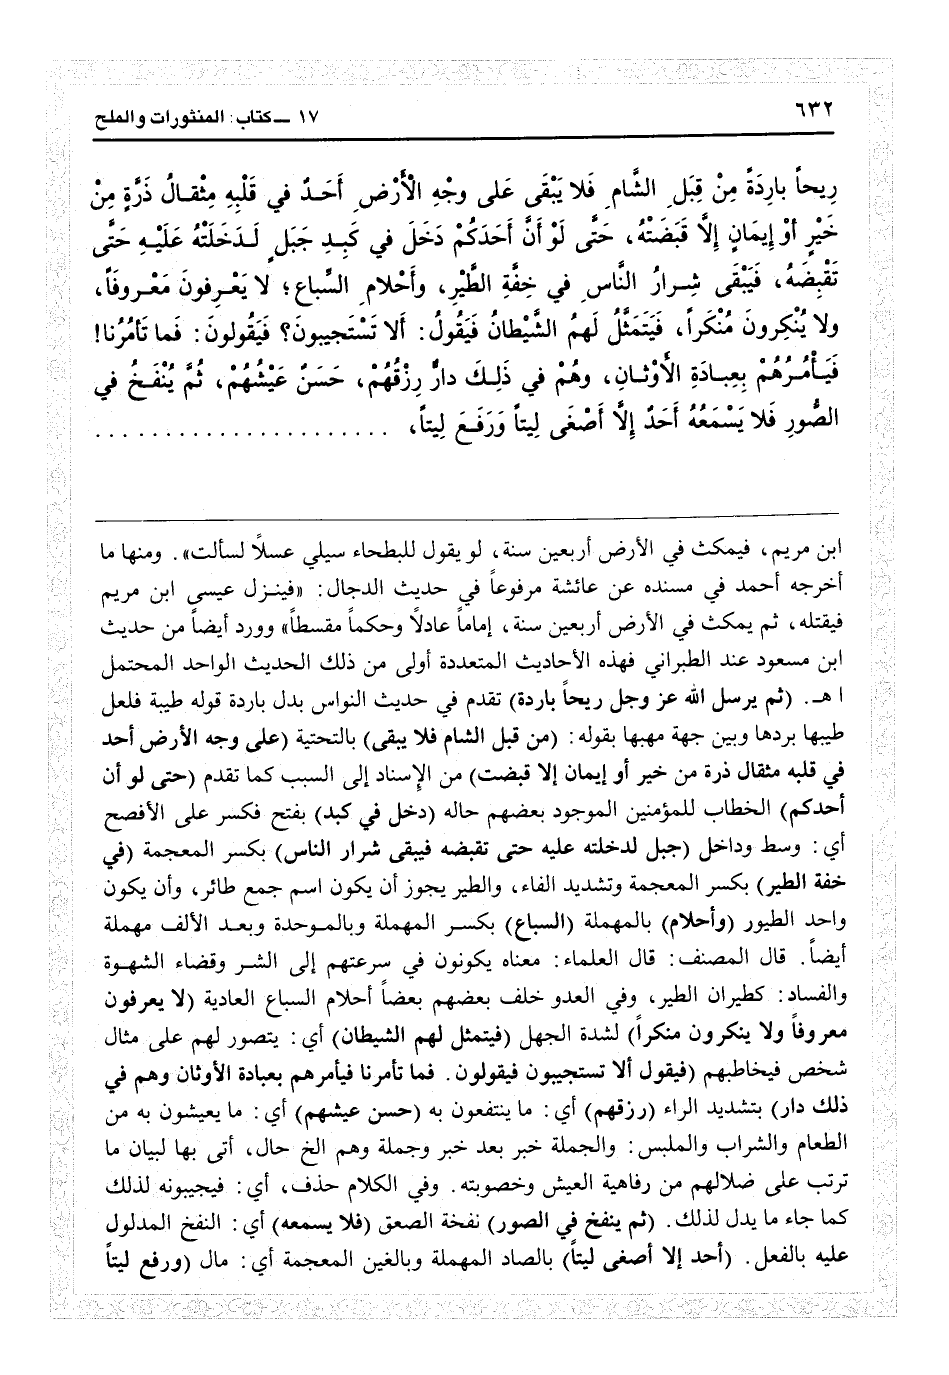 ٦٣٢
١٧ ــ كتاب: المنثورات والملح
رِيحاً بارِدَةً مِنْ قِبَلِ الشَّامِ فَلا يَبْقَى عَلى وجْهِ الْأَرْضِ أَحَدٌ في قَلْبِهِ مِثْقالُ ذَرَّةٍ مِنْ
خَيْرٍ أوْ إيمَانٍ إلَّا قَبَضَتْهُ، حَتَّى لَوْ أنَّ أَحَدَكُمْ دَخَلَ في كَبِدِ جَبَلٍ لَدَخَلَتْهُ عَلَيْهِ حَتَّى
تَقْبِضَهُ، فَيَبْقَى شِرارُ النَّاسِ في خِفَّةِ الطَّيْرِ، وأَحْلامِ السِّباعِ؛ لا يَعْرِفونَ مَعْروفاً،
ولا يُنْكِرونَ مُنْكَراً، فَيَتَمَثَّلُ لَهمُ الشَّيْطانُ فَيَقُولُ: ألا تَسْتَجيبونَ؟ فَيَقُولونَ: فَما تَأمُرُنا!
فَيَأْمُرُهُمْ بِعِبادَةِ الأَوْثانِ، وهُمْ في ذَلِكَ دارٌّ رِزْقُهُمْ، حَسَنٌ عَيْشُهُمْ، ثُمَّ يُنْفَخُ في
الصُّورِ فَلا يَسْمَعُهُ أَحَدٌ إلَّا أَصْغَى لِيتاً وَرَفَعَ لِيتاً، . . . . . . . . . . . . . . . . . . . . . .
ابن مريم، فيمكث في الأرض أربعين سنة، لو يقول للبطحاء سيلي عسلاً لسألت». ومنها ما
أخرجه أحمد في مسنده عن عائشة مرفوعاً في حديث الدجال: «فينزل عيسى ابن مريم
فيقتله، ثم يمكث في الأرض أربعين سنة، إماماً عادلاً وحكماً مقسطاً» وورد أيضاً من حديث
ابن مسعود عند الطبراني فهذه الأحاديث المتعددة أولى من ذلك الحديث الواحد المحتمل
ا هـ. (ثم يرسل الله عز وجل ريحاً باردة) تقدم في حديث النواس بدل باردة قوله طيبة فلعل
طيبها بردها وبين جهة مهبها بقوله: (من قبل الشام فلا يبقى) بالتحتية (على وجه الأرض أحد
في قلبه مثقال ذرة من خير أو إيمان إلا قبضت) من الإسناد إلى السبب كما تقدم (حتى لو أن
أحدكم) الخطاب للمؤمنين الموجود بعضهم حاله (دخل في كبد) بفتح فكسر على الأفصح
أي: وسط وداخل (جبل لدخلته عليه حتى تقبضه فيبقى شرار الناس) بكسر المعجمة (في
خفة الطير) بكسر المعجمة وتشديد الفاء، والطير يجوز أن يكون اسم جمع طائر، وأن يكون
واحد الطيور (وأحلام) بالمهملة (السباع) بكسر المهملة وبالموحدة وبعد الألف مهملة
أيضاً. قال المصنف: قال العلماء: معناه يكونون في سرعتهم إلى الشر وقضاء الشهوة
والفساد: كطيران الطير، وفي العدو خلف بعضهم بعضاً أحلام السباع العادية (لا يعرفون
معروفاً ولا ينكرون منكراً) لشدة الجهل (فيتمثل لهم الشيطان) أي: يتصور لهم على مثال
شخص فيخاطبهم (فيقول ألا تستجيبون فيقولون. فما تأمرنا فيأمرهم بعبادة الأوثان وهم في
ذلك دار) بتشديد الراء (رزقهم) أي: ما ينتفعون به (حسن عيشهم) أي: ما يعيشون به من
الطعام والشراب والملبس: والجملة خبر بعد خبر وجملة وهم الخ حال، أتى بها لبيان ما
ترتب على ضلالهم من رفاهية العيش وخصوبته. وفي الكلام حذف، أي: فيجيبونه لذلك
كما جاء ما يدل لذلك. (ثم ينفخ في الصور) نفخة الصعق (فلا يسمعه) أي: النفخ المدلول
عليه بالفعل. (أحد إلا أصغى ليتاً) بالصاد المهملة وبالغين المعجمة أي: مال (ورفع ليتاً